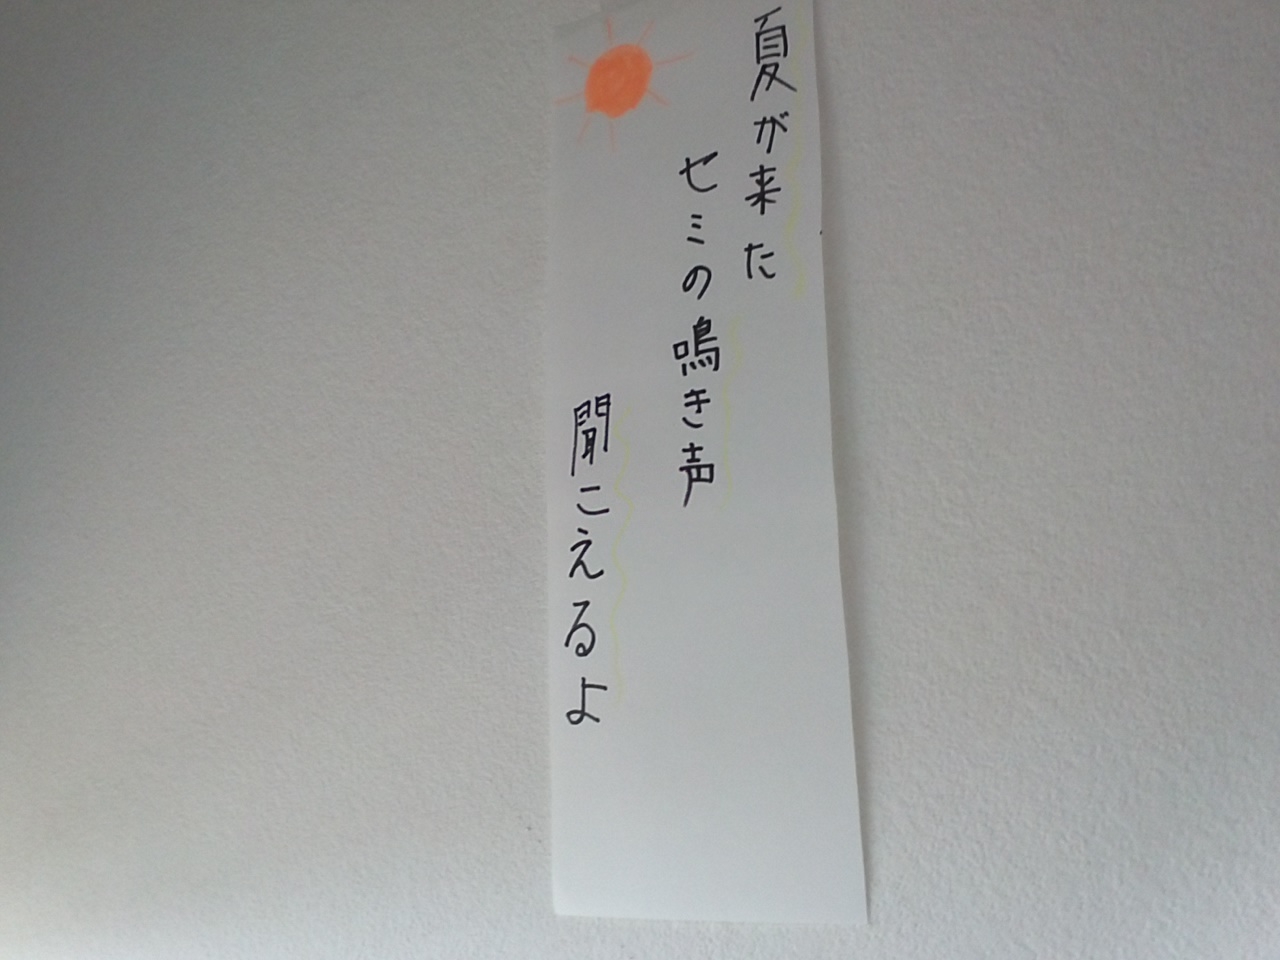 夏が来た
セミの鳴き声
聞こえるよ